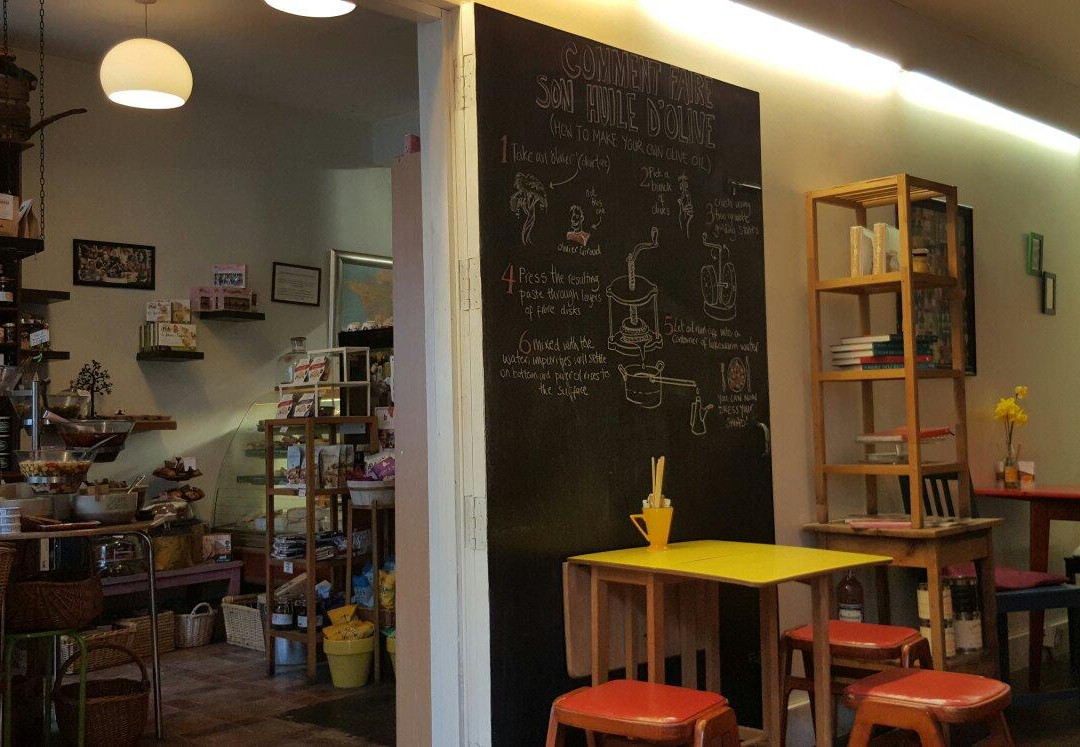 COMMENT FAIRE
SON HUILE D'OLIVE
(HOW TO MAKE YOUR OWN OLIVE OIL)
1 Take an olivier
not
this
one
olivier Giroud
2 Pick a
bunch
of
olives
3 crush using
two granite
grinding stones
4 Press the resulting
paste through layers
of fibre disks
5 Let oil run-off into a
container of lukewarm water
6 Mixed with the
water, impurities will settle
on bottom and pure oil rises to
the surface
YOU CAN NOW
DRESS YOUR
SALAD!